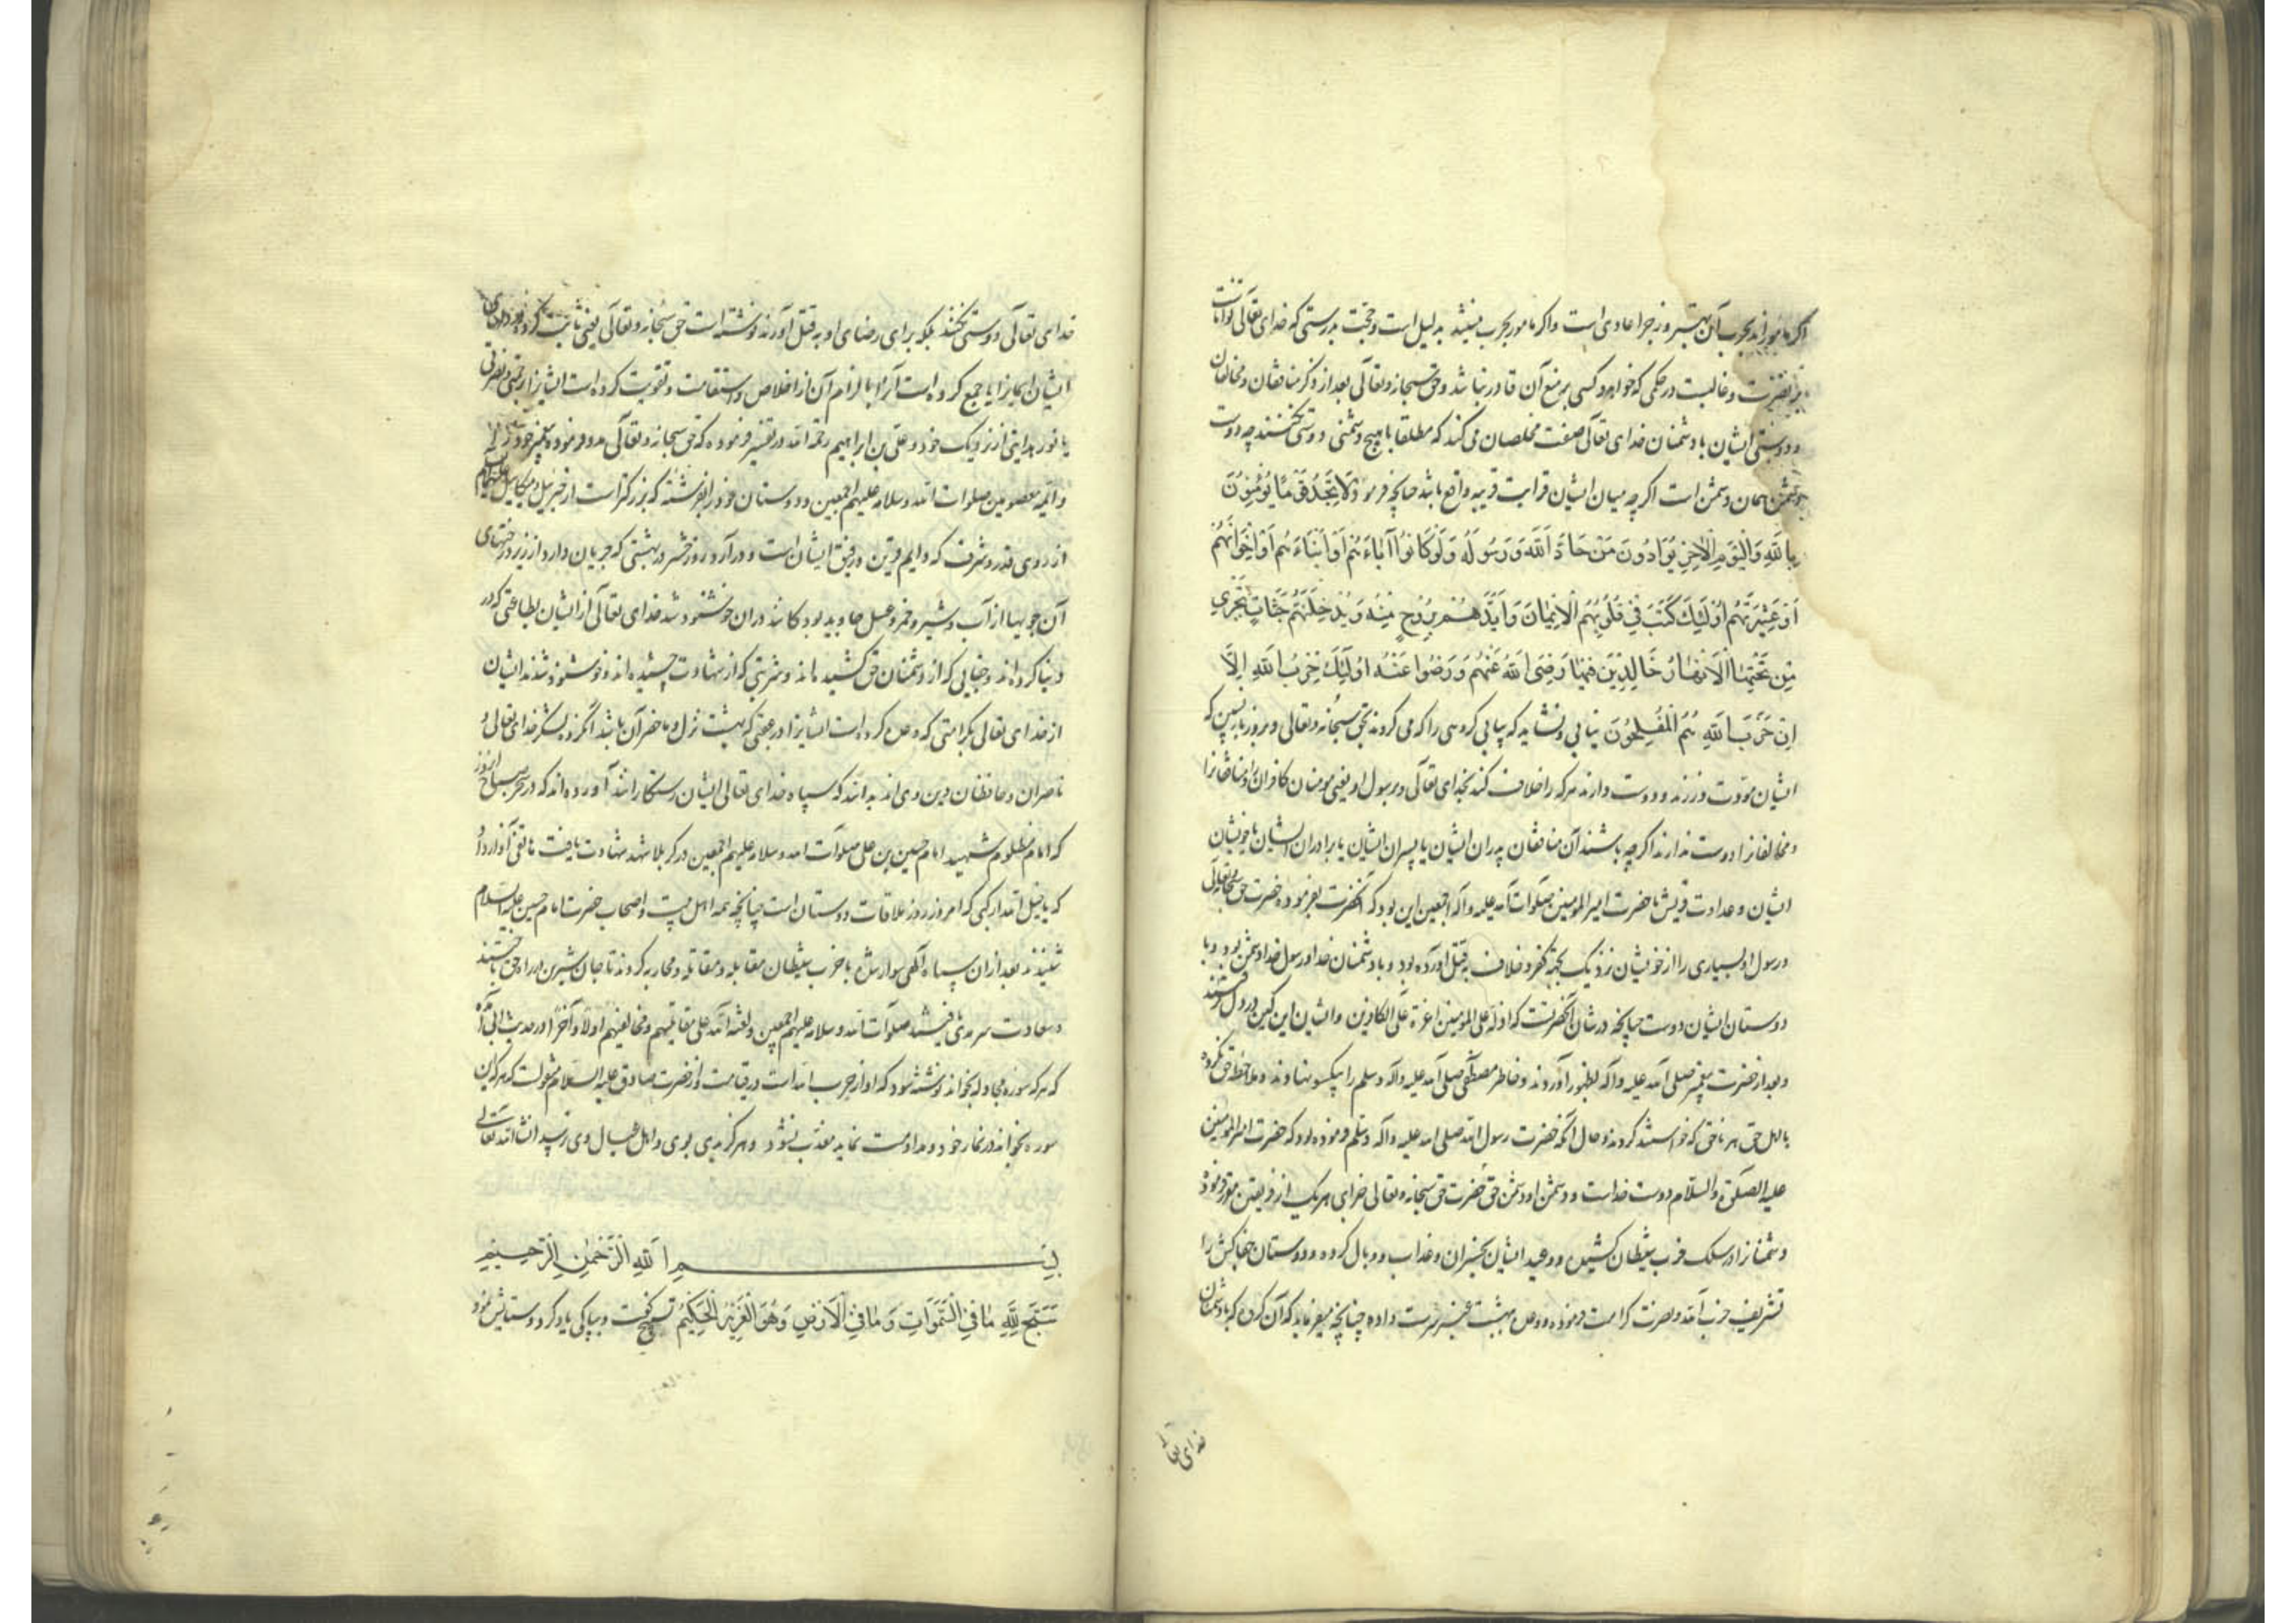 اگر مامورند بحرب آن بتیسر و زجر اعادی است و اگر مامور بحرب نیستند بدلیل است و حجت بدرستی که خدای تعالی تواناست
بر نصرت و غالبست در حکمی که خواهد و کسی بر منع آن قادر نباشد و حق سبحانه و تعالی بعد از ذکر منافقان و مخالفان
و دوستی ایشان با دشمنان خدای تعالی صفت مخلصان می کند که مطلقا با هیچ دشمنی دوستی نکنند چه دوست
دشمن همان دشمن است اگر چه میان ایشان قرابت قریبه واقع باشد چنانچه فرمود لَا تَجِدُ قَوْمًا يُؤْمِنُونَ
بِاللَّهِ وَالْيَوْمِ الْآخِرِ يُوَادُّونَ مَنْ حَادَّ اللَّهَ وَرَسُولَهُ وَلَوْ كَانُوا آبَاءَهُمْ أَوْ أَبْنَاءَهُمْ أَوْ إِخْوَانَهُمْ
أَوْ عَشِيرَتَهُمْ أُولَئِكَ كَتَبَ فِي قُلُوبِهِمُ الْإِيمَانَ وَأَيَّدَهُمْ بِرُوحٍ مِنْهُ وَيُدْخِلُهُمْ جَنَّاتٍ تَجْرِي
مِنْ تَحْتِهَا الْأَنْهَارُ خَالِدِينَ فِيهَا رَضِيَ اللَّهُ عَنْهُمْ وَرَضُوا عَنْهُ أُولَئِكَ حِزْبُ اللَّهِ أَلَا
إِنَّ حِزْبَ اللَّهِ هُمُ الْمُفْلِحُونَ نیابی و نشاید که بیابی گروهی را که می گروند بحق سبحانه و تعالی و بروز بازپسین که
ایشان مودت ورزند و دوست دارند هر که را خلاف کند بخدای تعالی و برسول او یعنی مومنان کافران را و منافقانرا
و مخالفانرا دوست ندارند اگر چه باشند آن منافقان پدران ایشان یا پسران ایشان یا برادران ایشان یا خویشان
ایشان و عداوت قریش با حضرت امیرالمومنین صلوات الله علیه و آله اجمعین این بود که آنحضرت بفرموده حضرت حق سبحانه و تعالی
و رسول او بسیاری را از خویشان نزدیک بجهة کفر و خلاف بقتل آورده بود و با دشمنان خدا و رسول خدا دشمن بود و با
دوستان ایشان دوست چنانچه در شان آنحضرتست که اذلة علی المومنین اعزة علی الکافرین و ایشان این کین در دل گرفتند
و بعد از حضرت پیغمبر صلی الله علیه و آله بظهور آوردند و خاطر مصطفی صلی الله علیه و آله و سلم را بیکسو نهادند و ملاحظه حق نکرده
با اهل حق هر ناحق که خواستند کردند و حال آنکه حضرت رسول الله صلی الله علیه و آله و سلم فرموده بود که حضرت امیرالمومنین
علیه الصلوة والسلام دوست خداست و دشمن او دشمن حق حضرت حق سبحانه و تعالی جزای هر یک از فریقین مقرر فرموده
دشمنانرا در سلک حزب شیطان کشیده و وعید ایشان بخسران و عذاب و وبال کرده و دوستان جفاکش را
تشریف حزب الله و نصرت کرامت فرموده و وعده بهشت عنبر سرشت داده چنانچه میفرماید که آن گروه که با دشمنان
خدای تعالی
خدای تعالی دوستی نکنند بلکه برای رضای او بقتل آورند نوشته است حق سبحانه و تعالی یعنی ثابت کرده در دلهای
ایشان ایمانرا یا جمع کرده است آنرا با لوازم آن از اخلاص و استقامت و تقویت کرده است ایشانرا برحمتی و نصرتی
یا نور هدایتی از نزدیک خود و علی بن ابراهیم رحمه الله در تفسیر فرموده که حق سبحانه و تعالی مدد فرموده پیغمبر خود را
و ائمه معصومین صلوات الله و سلامه علیهم اجمعین و دوستان خود را بفرشته که بزرگتر است از جبرئیل و میکائیل علیهم السلام
از روی قدر و شرف که دایم قرین و رفیق ایشان است و در آرد روز حشر در بهشتی که جریان دارد از زیر درختهای
آن جویها از آب و شیر و خمر و عسل جاوید بودکانند دران خوشنود شد خدای تعالی از ایشان بطاعتی که در
دنیا کرده اند و جفایی که از دشمنان حق کشیده اند و شربتی که از شهادت چشیده اند و خوشنود شدند ایشان
از خدای تعالی بکرامتی که وعده کرده است ایشانرا در جنتی که بهشت نزل و ما حضر آن باشد آنگروه لشکر خدای تعالی و
ناصران و حافظان دین وی اند بدانند که سپاه خدای تعالی ایشان رستگارانند آورده اند که در صباح آنروز
که امام مظلوم شهید امام حسین بن علی صلوات الله و سلامه علیهم اجمعین در کربلا شهد شهادت یافت هاتفی آواز داد
که یا خیل الله ارکبی که امروز روز ملاقات دوستان است چنانچه همه اهل بیت و اصحاب حضرت امام حسین علیه السلام
شنیدند بعد ازان سپاه الهی سوار شده با حزب شیطان مقابله و مقاتله و محاربه کردند تا جان شیرین در راه حق باختند
و سعادت سرمدی یافتند صلوات الله و سلامه علیهم اجمعین و لعنة الله علی مقاتلیهم و مخالفیهم اولا و آخرا و در حدیث ابی آمده
که هر که سوره مجادله بخواند نوشته شود که او از حزب الله است در قیامت و از حضرت صادق علیه السلام منقولست که هر که این
سوره بخواند در نماز خود و مداومت نماید معذب نشود و هرگز بدی بوی و اهل و عیال وی نرسد انشاءالله تعالی
بِسْمِ اللَّهِ الرَّحْمٰنِ الرَّحِيمِ
سَبَّحَ لِلَّهِ مَا فِي السَّمَوَاتِ وَمَا فِي الْأَرْضِ وَهُوَ الْعَزِيزُ الْحَكِيمُ تسبیح گفت و بپاکی یاد کرد و ستایش نمود